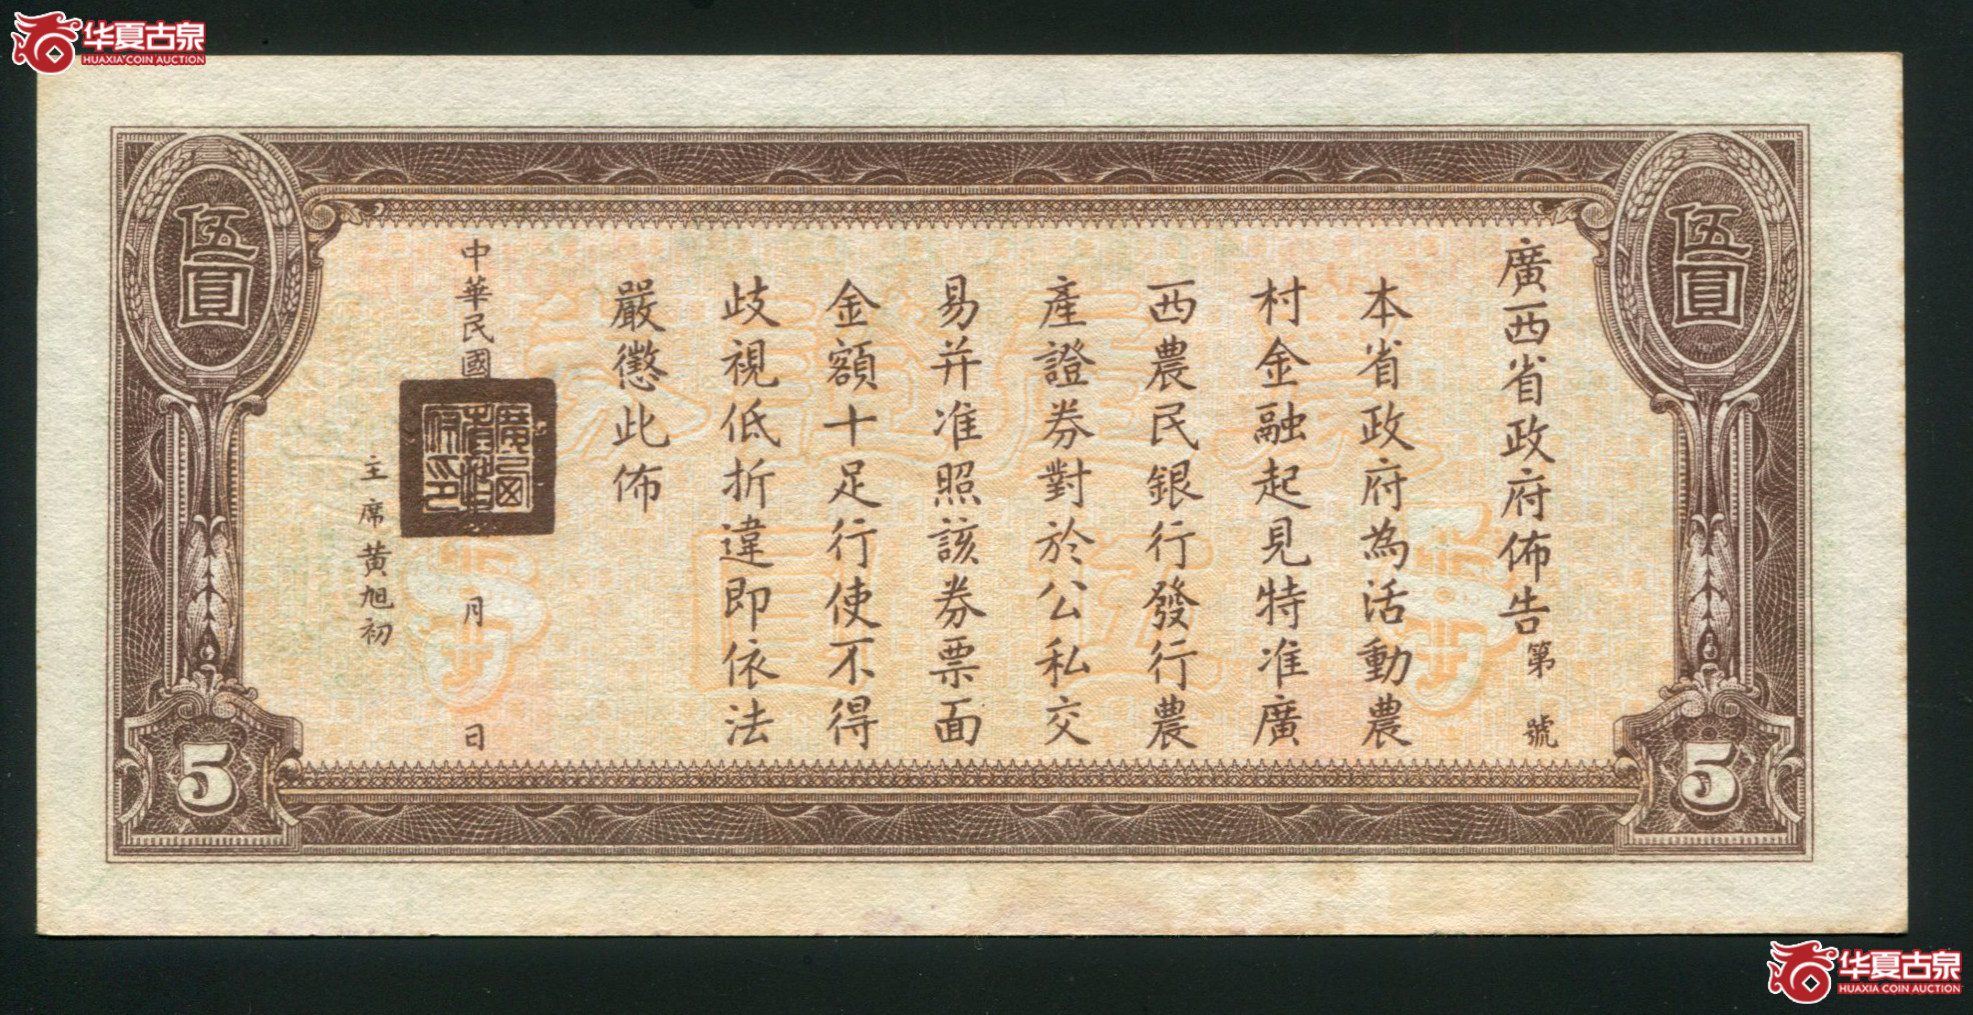 华夏古泉
HUAXIA COIN AUCTION
伍圓
伍圓
廣西省政府佈告第 號
本省政府為活動農
村金融起見特准廣
西農民銀行發行農
產證券對於公私交
易并准照該券票面
金額十足行使不得
歧視低折違即依法
嚴懲此佈
中華民國 月 日
主席黃旭初
廣西省政府印
5
5
华夏古泉
HUAXIA COIN AUCTION